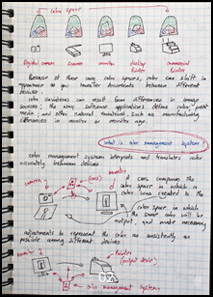 color spaces
Digital camera scanner monitor desktop printer commercial printer
Because of these vary color spaces, color can shift in
appearance as you transfer documents between different
devices.
color variations can result from differences in image
sources;
media; and other natural variations, such as manufacturing
differences in monitors or monitor age.
what is color management system?
color management system interprets and translates color
accurately between devices
camera
It compares the
color space in which a
color was created to the
color space in which
the same color will be
output, and makes necessary
adjustments to represent the color as consistently as
possible among different devices.
monitor
Printer
(output device)
color management system